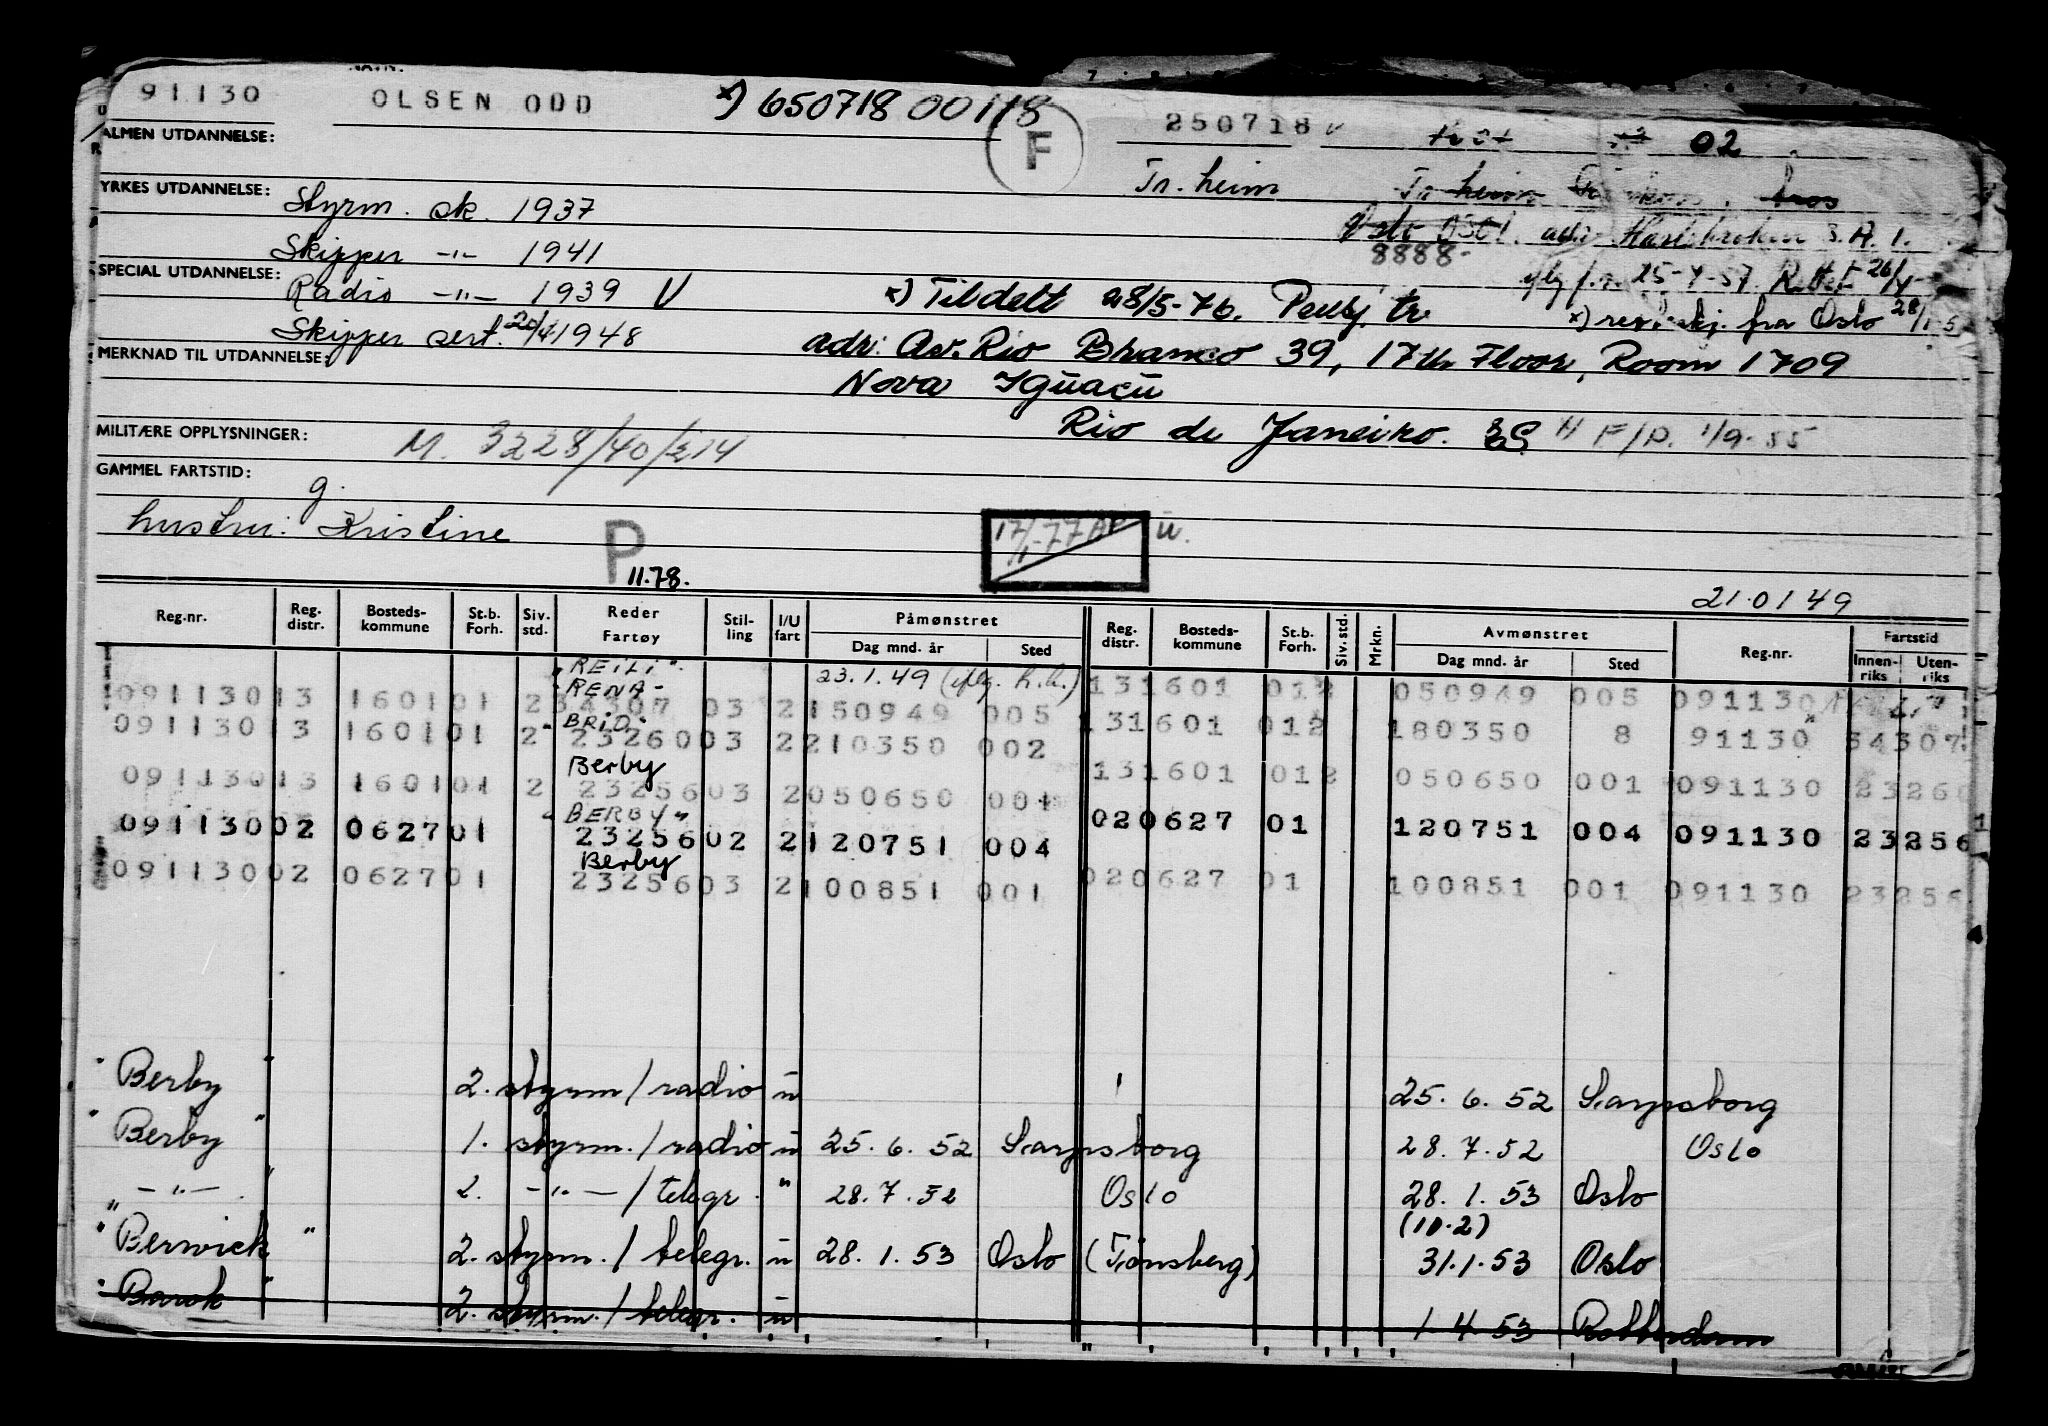 NAVN:
91130 OLSEN ODD x) 650718 00118 F 250718 02
ALMEN UTDANNELSE:
Tr. heim Tr. heim
YRKES UTDANNELSE: Styrm. sk. 1937
Skipper -"- 1941
8888-
SPECIAL UTDANNELSE: Radio -"- 1939 V
25-4-57.
x) Tildelt 28/5-76.
fra Oslo
Skipper sert. 1948
adr: Av. Rio Branco 39, 17th Floor, Room 1709
MERKNAD TIL UTDANNELSE:
Nova Iguacu
Rio de Janeiro. 1/9-55
MILITÆRE OPPLYSNINGER: M. 3228/40/
GAMMEL FARTSTID: g.
hustru: Kristine P 17/1-77 u.
11.78.
21.01 49
Reg.nr. Reg. distr. Bosteds- kommune St.b. Forh. Siv. std. Reder Fartøy Stil- ling I/U fart Påmønstret Dag mnd. år Sted Reg. distr. Bosteds- kommune St.b. Forh. Siv.std. Mrkn. Avmønstret Dag mnd. år Sted Reg.nr. Fartstid Innen- riks Uten- riks
"REILI" 23.1.49
"RENA"
09113013 160101 2 34307 03 2 150949 005 131601 012 050949 005 091130
"BRIDI"
09113013 160101 2 23260 03 2 210350 002 131601 012 180350 8 91130 34307
Berby
09113013 160101 2 23256 03 2 050650 001 131601 012 050650 001 091130 23260
"BERBY"
09113002 062701 23256 02 2 120751 004 020627 01 120751 004 091130 23256
Berby
09113002 062701 23256 03 2 100851 001 020627 01 100851 001 091130 23256
"Berby" 2. styrm / radio u 25. 6. 52 Sarpsborg
"Berby" 1. styrm. / radio u 25. 6. 52 Sarpsborg 28. 7. 52 Oslo
" -"- " 2. -"- / telegr. " 28. 7. 52 Oslo 28. 1. 53 Oslo
(10.2)
"Berwick" 2. styrm. / telegr. u 28. 1. 53 Oslo (Tønsberg) 31.1.53 Oslo
"Barok" 2. styrm. / telegr. u 1.4.53 Rotterdam